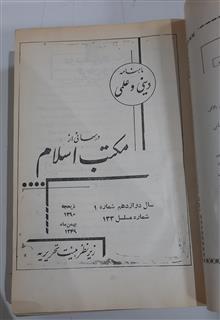 ماهنامه
دینی و علمی
درسهائی از
مکتب اسلام
سال دوازدهم شماره ۱
شماره مسلسل ۱۳۳
ذیحجه
۱۳۹۰
بهمن ماه
۱۳۴۹
زیر نظر هیئت تحریریه